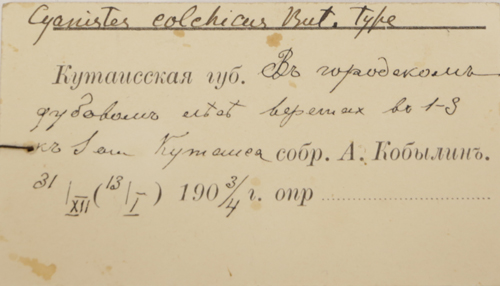 Cyanistes colchicus But. type
Кутаисская губ. Въ городскомъ
дубовомъ лѣсѣ верстах въ 1-3
къ S отъ Кутаиса собр. А. Кобылинъ.
31/XII (13/I) 190 3/4 г. опр